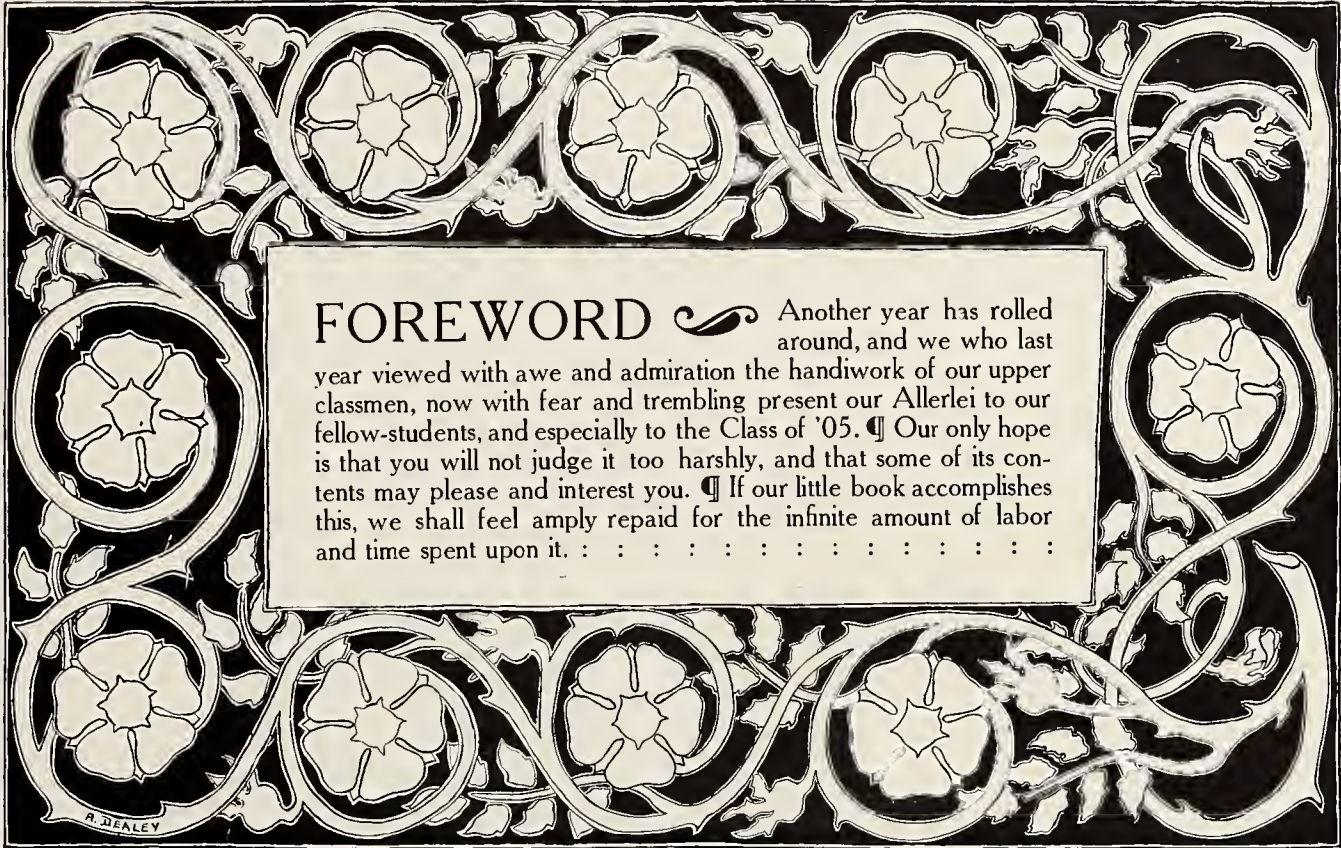 FOREWORD Another year has rolled
around, and we who last
year viewed with awe and admiration the handiwork of our upper
classmen, now with fear and trembling present our Allerlei to our
fellow-students, and especially to the Class of '05. ¶ Our only hope
is that you will not judge it too harshly, and that some of its con-
tents may please and interest you. ¶ If our little book accomplishes
this, we shall feel amply repaid for the infinite amount of labor
and time spent upon it. : : : : : : : : : : : : : :
A. DEALEY